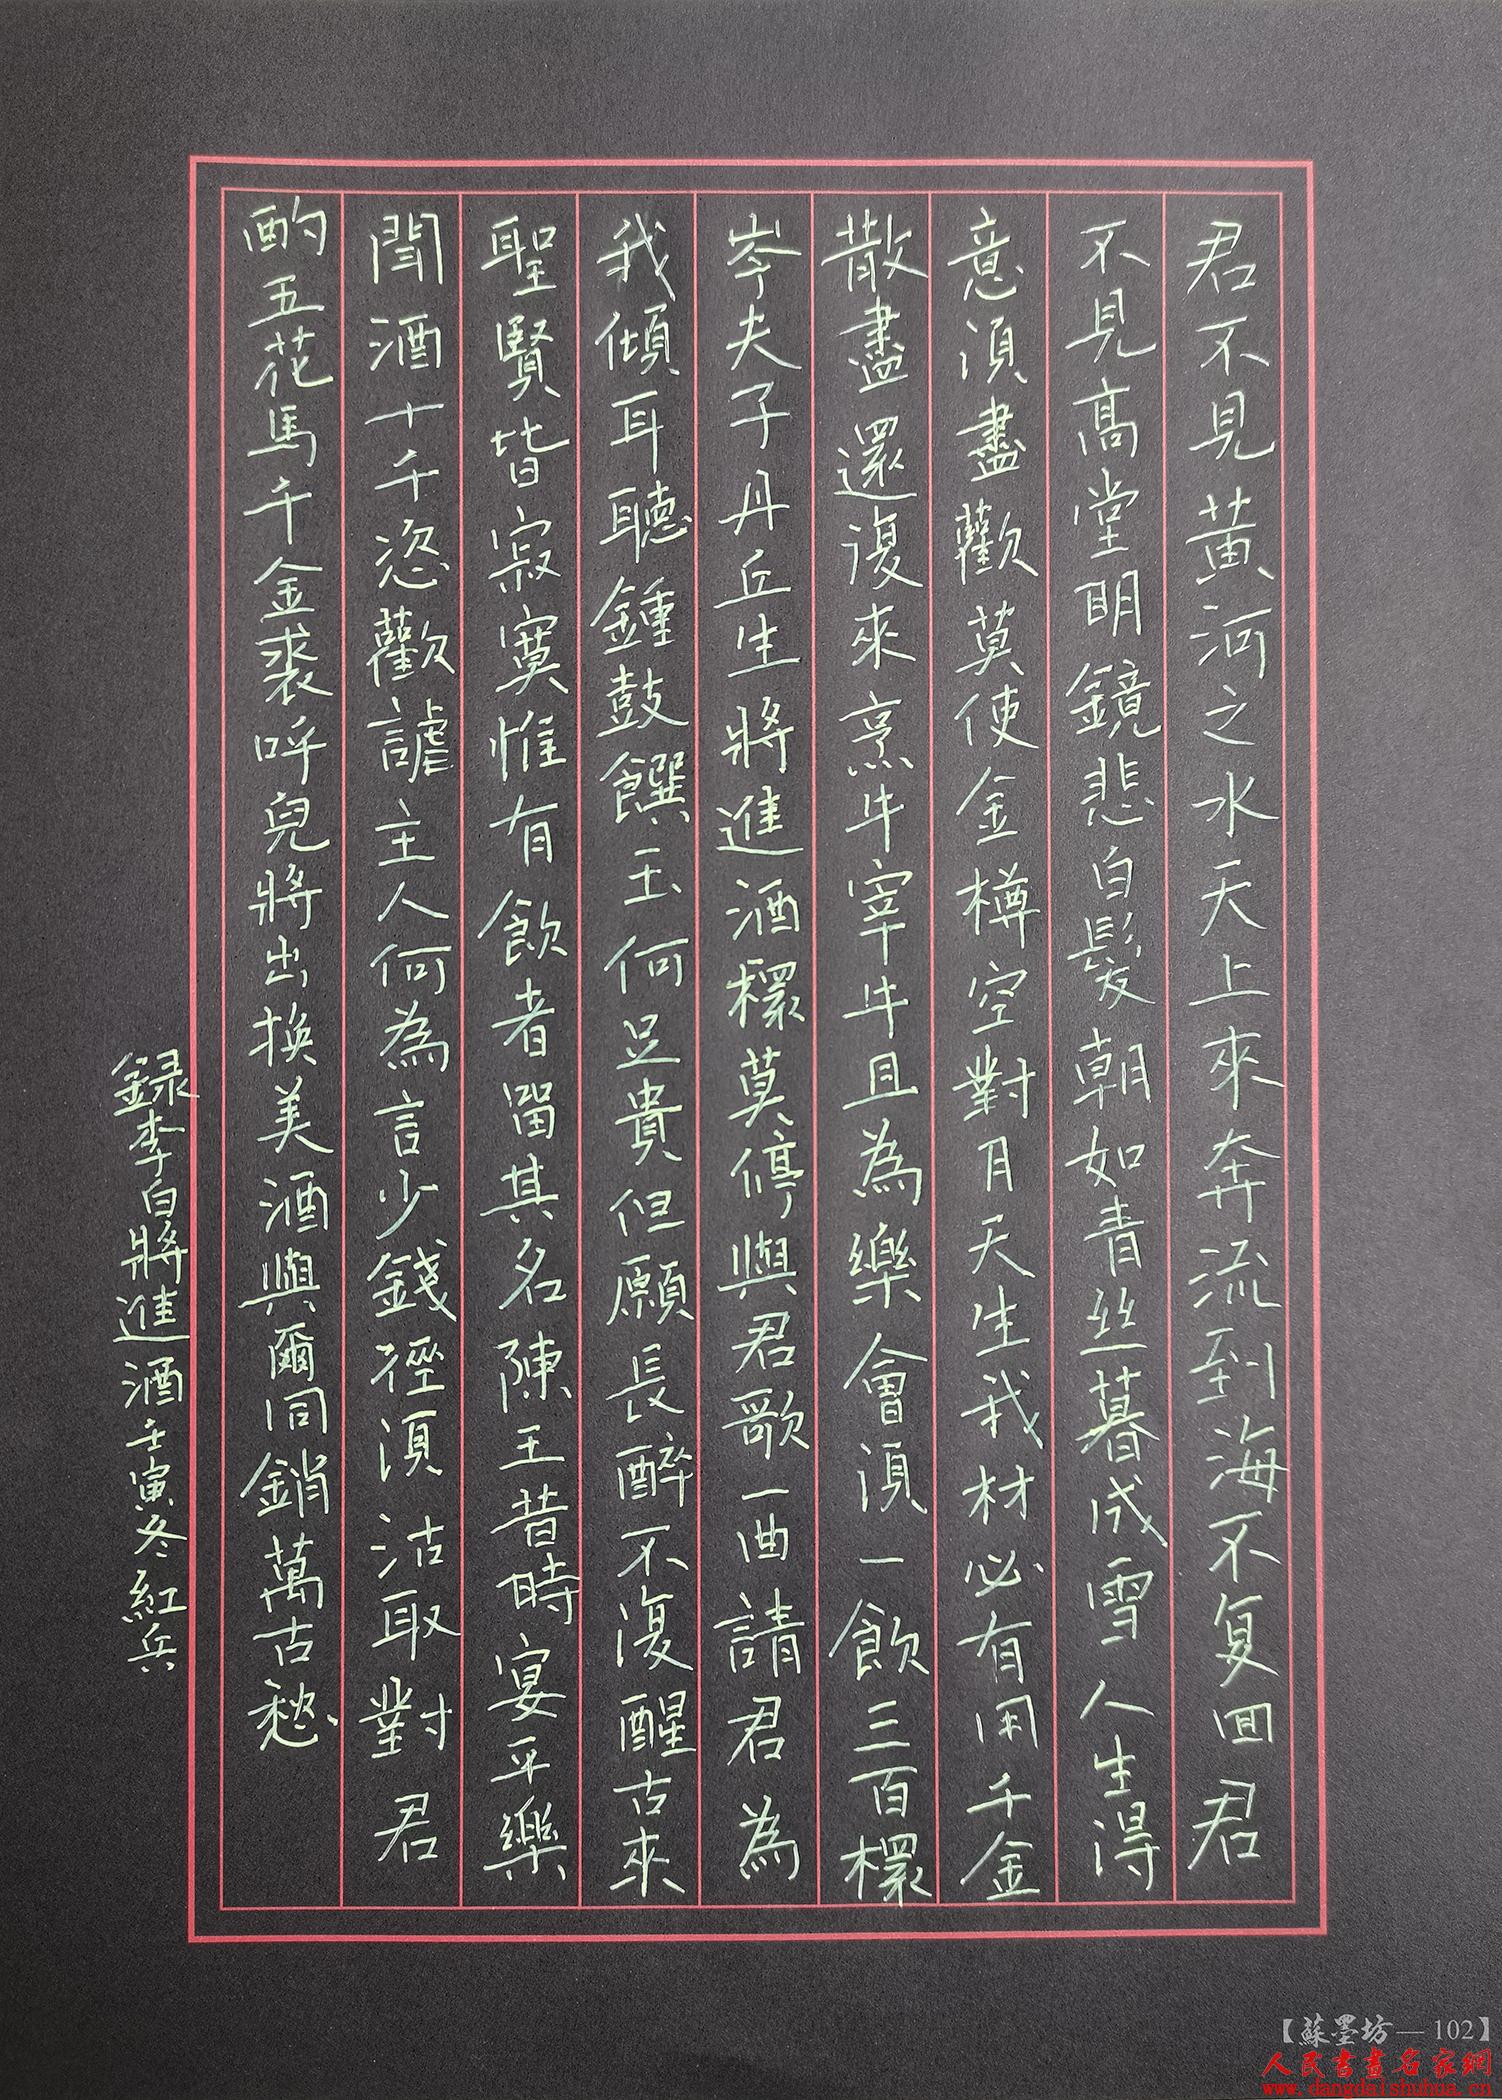 君不見黄河之水天上來奔流到海不复囬君
不見高堂明鏡悲白髮朝如青丝暮成雪人生得
意須盡歡莫使金樽空對月天生我材必有用千金
散盡還復來烹牛宰牛且為樂會須一飲三百
岑夫子丹丘生將進酒莫停與君歌一曲請君為
我傾耳聽鍾鼓饌玉何足貴但願長醉不復醒古來
聖賢皆寂寞惟有飲者留其名陳王昔時宴平樂
酒十千恣歡謔主人何為言少錢徑須沽取對君
酌五花馬千金裘呼兒將出換美酒與爾同銷萬古愁
録李白將進酒壬寅冬紅兵
【蘇墨坊—102】
人民書畫名家網
www.dangdaishuhua.cn